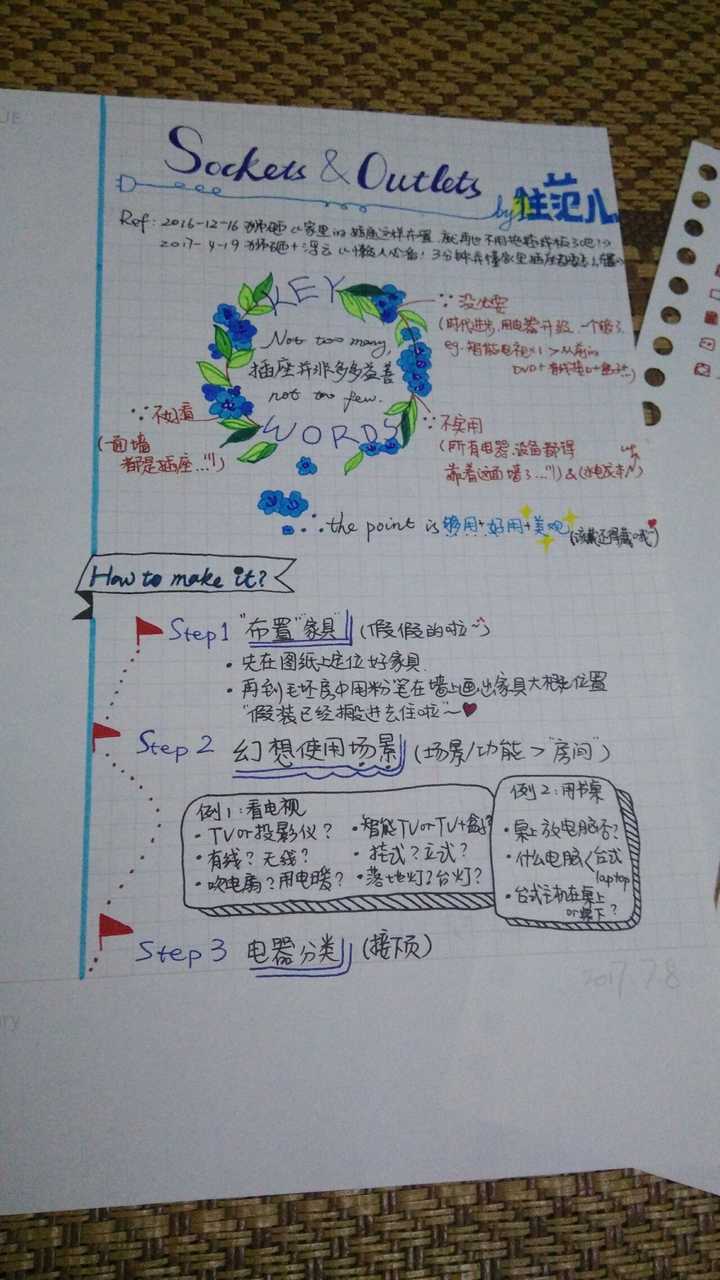 Sockets & Outlets
by 住范儿
Ref: 2016-12-16 狮砸 家里的插座这样布置 就再也不用拖接线板了吧!
2017-4-19 狮砸+浮云 懒人必备! 3分钟弄懂家里插座
KEY
Not too many,
插座并非多多益善
not too few.
WORDS
∵没必要
(时代进步,用电器升级,一个够了.
eg.智能电视×1 > 从前的
DVD+有线
∵不好看
(一面墙
都是插座..."!)
∵不实用
(所有电器、设备都得
靠着这面墙了..."!)&(水电成本
∴the point is 够用+好用+美观
(该藏还得藏哦~)
How to make it?
Step1 "布置"家具" (假假的啦~)
·先在图纸上定位好家具.
·再到毛坯房中用粉笔在墙上画出家具大概位置
"假装已经搬进去住啦"~
Step 2 幻想使用场景 (场景/功能>"房间")
例1:看电视
·TV or 投影仪? ·智能TV or TV+盒子?
·有线?无线? ·挂式?立式?
·吹电扇?用电暖? ·落地灯?台灯?
例2:用书桌
·桌上放电脑否?
·什么电脑<台式
laptop
·台式主机在桌上
or 桌下?
Step 3 电器分类 (接下页)
2017.7.8